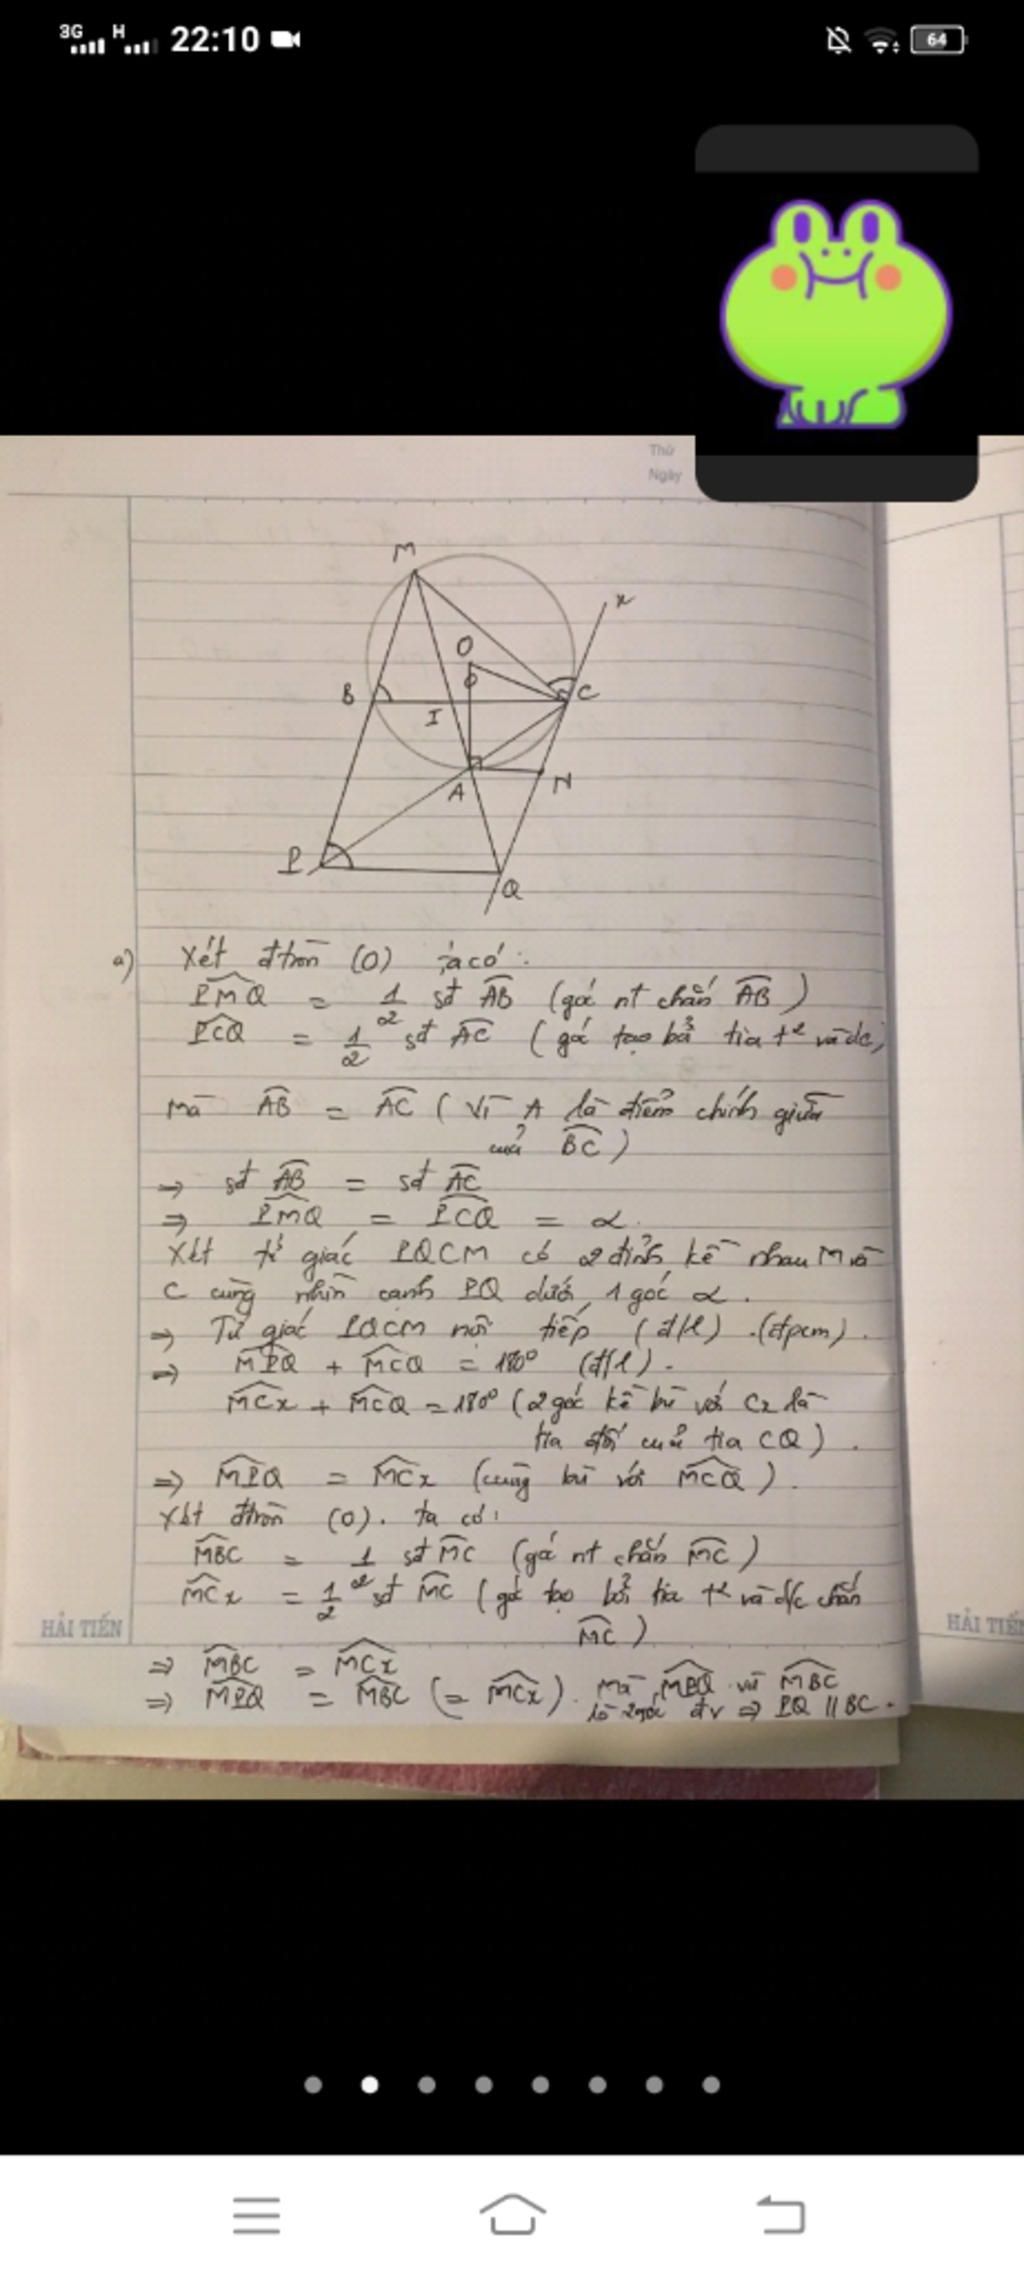 3G H 22:10 64
Thứ
Ngày
M
x
O
B
C
I
A
N
P
Q
a) Xét đtròn (O) ta có:
PMQ = 1/2 sđ AB (góc nt chắn AB)
PCQ = 1/2 sđ AC (góc tạo bởi tia t² và dc)
Mà AB = AC (Vì A là điểm chính giữa
của BC)
=> sđ AB = sđ AC
=> PMQ = PCQ = α.
Xét tứ giác PQCM có 2 đỉnh kề nhau M và
C cùng nhìn cạnh PQ dưới 1 góc α.
=> Tứ giác PQCM nội tiếp (đ/l). (đpcm).
=> MPQ + MCQ = 180° (đ/l).
MCx + MCQ = 180° (2 góc kề bù với Cx là
tia đối của tia CQ).
=> MPQ = MCx (cùng bù với MCQ).
Xét đtròn (O). ta có:
MBC = 1/2 sđ MC (góc nt chắn MC)
MCx = 1/2 sđ MC (góc tạo bởi tia t² và d/c chắn
MC)
HẢI TIẾN
HẢI TIẾN
=> MBC = MCx
=> MPQ = MBC (= MCx). mà MPQ và MBC
là 2 góc đv => PQ // BC.